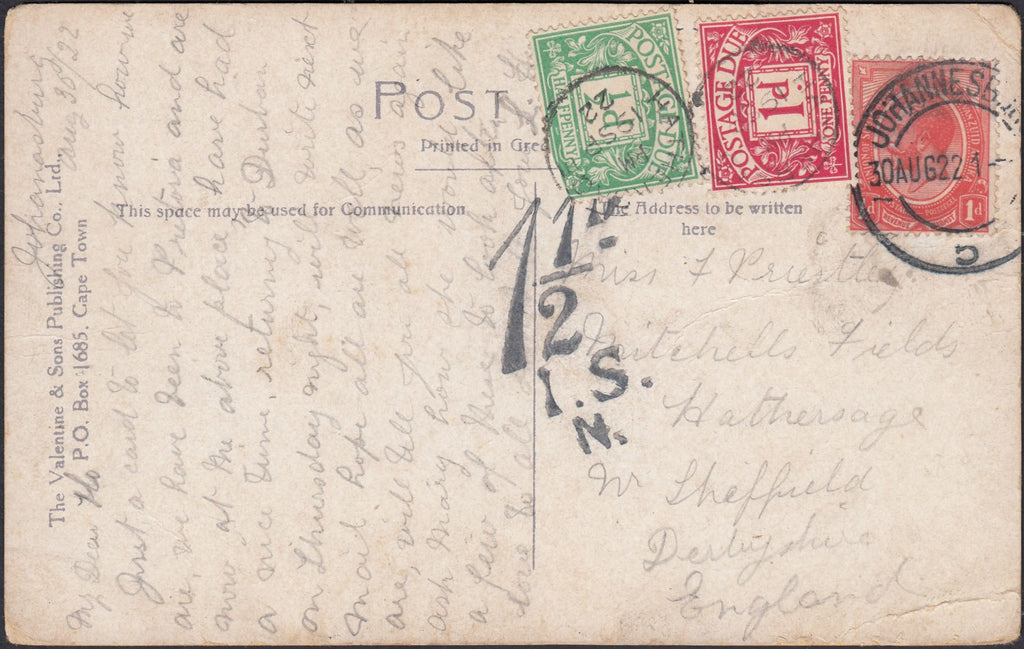 POST
Printed in Gre
This space may be used for Communication
The Address to be written
here
The Valentine & Sons Publishing Co., Ltd.,
P.O. Box 1685. Cape Town
POSTAGE DUE
½d
HALFPENNY
POSTAGE DUE
1d
ONE PENNY
22
JOHANNESBU
30AUG22 1
REVENUE
1d
1½
I.S.
N.
Miss F Priestle
Mitchells Fields
Hathersage
Nr Sheffield
Derbyshire
England
Johannesburg
Aug 30/22
My Dear Flo
Just a card to let you know how we
are, we have been to Pretoria and are
now at the above place have had
a nice time, returning to Durban
on Thursday night, will write next
mail hope all are well as we
are, will tell you all news
ask Mary how she would like
a few of these to look after
love to all